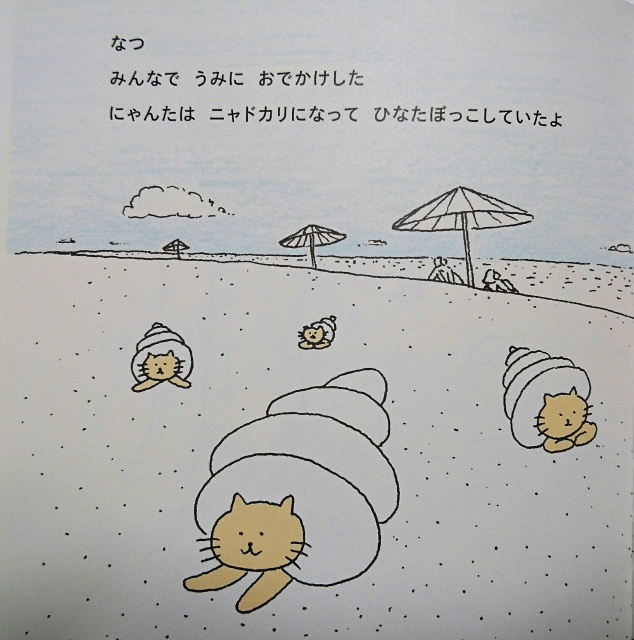 なつ
みんなで うみに おでかけした
にゃんたは ニャドカリになって ひなたぼっこしていたよ